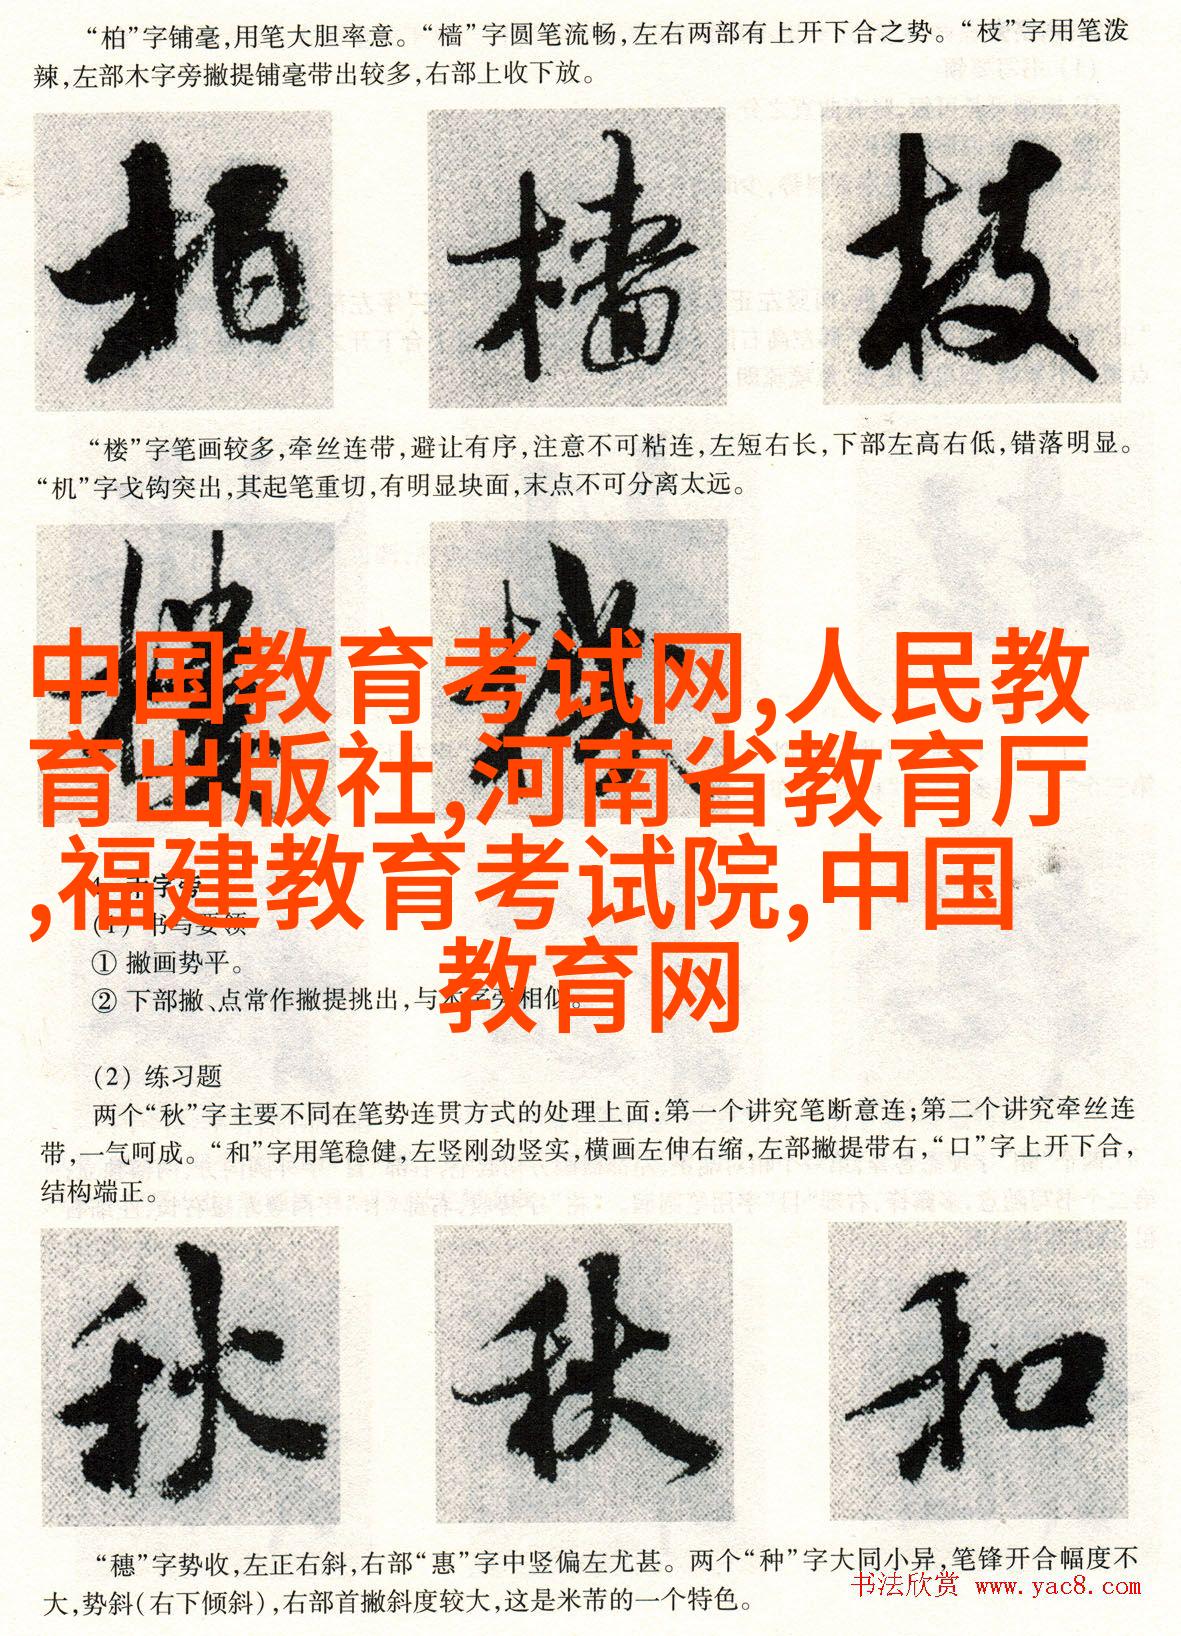 “柏”字铺毫,用笔大胆率意。“樯”字圆笔流畅,左右两部有上开下合之势。“枝”字用笔泼
辣,左部木字旁撇提铺毫带出较多,右部上收下放。
柏 樯 枝
“楼”字笔画较多,牵丝连带,避让有序,注意不可粘连,左短右长,下部左高右低,错落明显。
“机”字戈钩突出,其起笔重切,有明显块面,末点不可分离太远。
中国教育考试网,人民教
育出版社,河南省教育厅
,福建教育考试院,中国
教育网
(1) 书写要领
① 撇画势平。
② 下部撇、点常作撇提挑出,与木字旁相似。
(2) 练习题
两个“秋”字主要不同在笔势连贯方式的处理上面:第一个讲究笔断意连;第二个讲究牵丝连
带,一气呵成。“和”字用笔稳健,左竖刚劲竖实,横画左伸右缩,左部撇提带右,“口”字上开下合,
结构端正。
秋 秋 和
“穗”字势收,左正右斜,右部“惠”字中竖偏左尤甚。两个“种”字大同小异,笔锋开合幅度不
大,势斜(右下倾斜),右部首撇斜度较大,这是米芾的一个特色。
书法欣赏 www.yac8.com